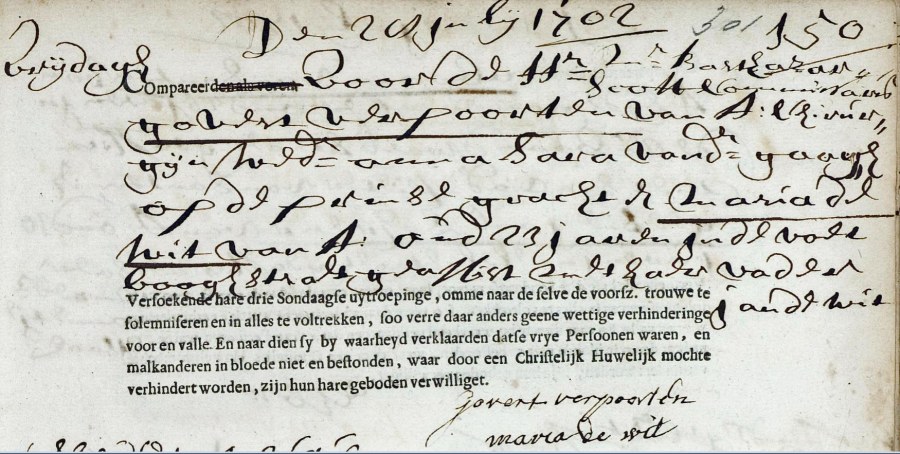 Den 28 july 1702 301 150
vrydagh
Compareerden als vooren voor de Hr. Mr. Barthazar
Scott Commissaris
govert verpoorten van A: Chirur„
gyn Wedr. anna Sara vandr. gaagh
op de prinse gracht &
maria de
wit van A: oud 23 jaren in de voet
boogh straat geassist met haer vader
jan de wit
Versoekende hare drie Sondaagse uytroepinge, omme naar de selve de voorsz. trouwe te
solemniseren en in alles te voltrekken, soo verre daar anders geene wettige verhinderinge
voor en valle. En naar dien sy by waarheyd verklaarden datse vrye Persoonen waren, en
malkanderen in bloede niet en bestonden, waar door een Christelijk Huwelijk mochte
verhindert worden, zijn hun hare geboden verwilliget.
govert verpoorten
maria de wit